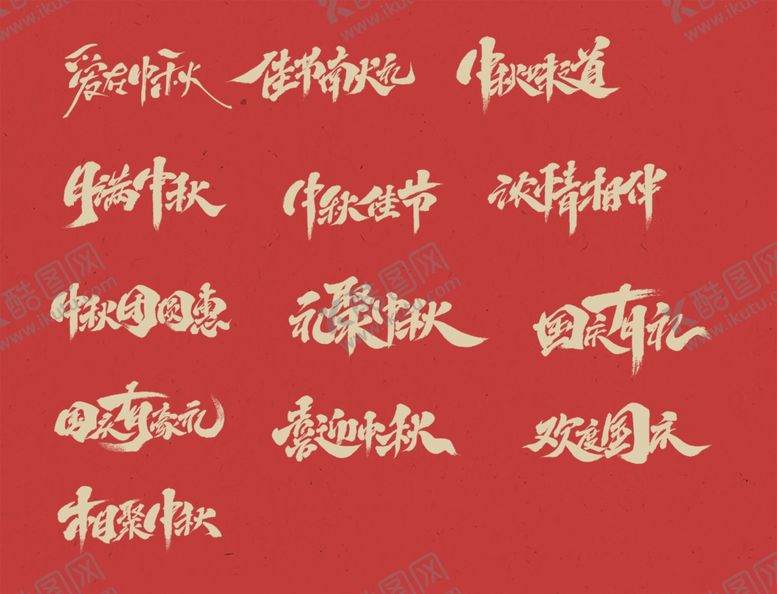 爱在中秋
佳节有礼
中秋味之道
月满中秋
中秋佳节
浓情相伴
中秋团圆惠
礼聚中秋
国庆有礼
国庆有豪礼
喜迎中秋
欢度国庆
相聚中秋
酷图网
www.ikutu.com